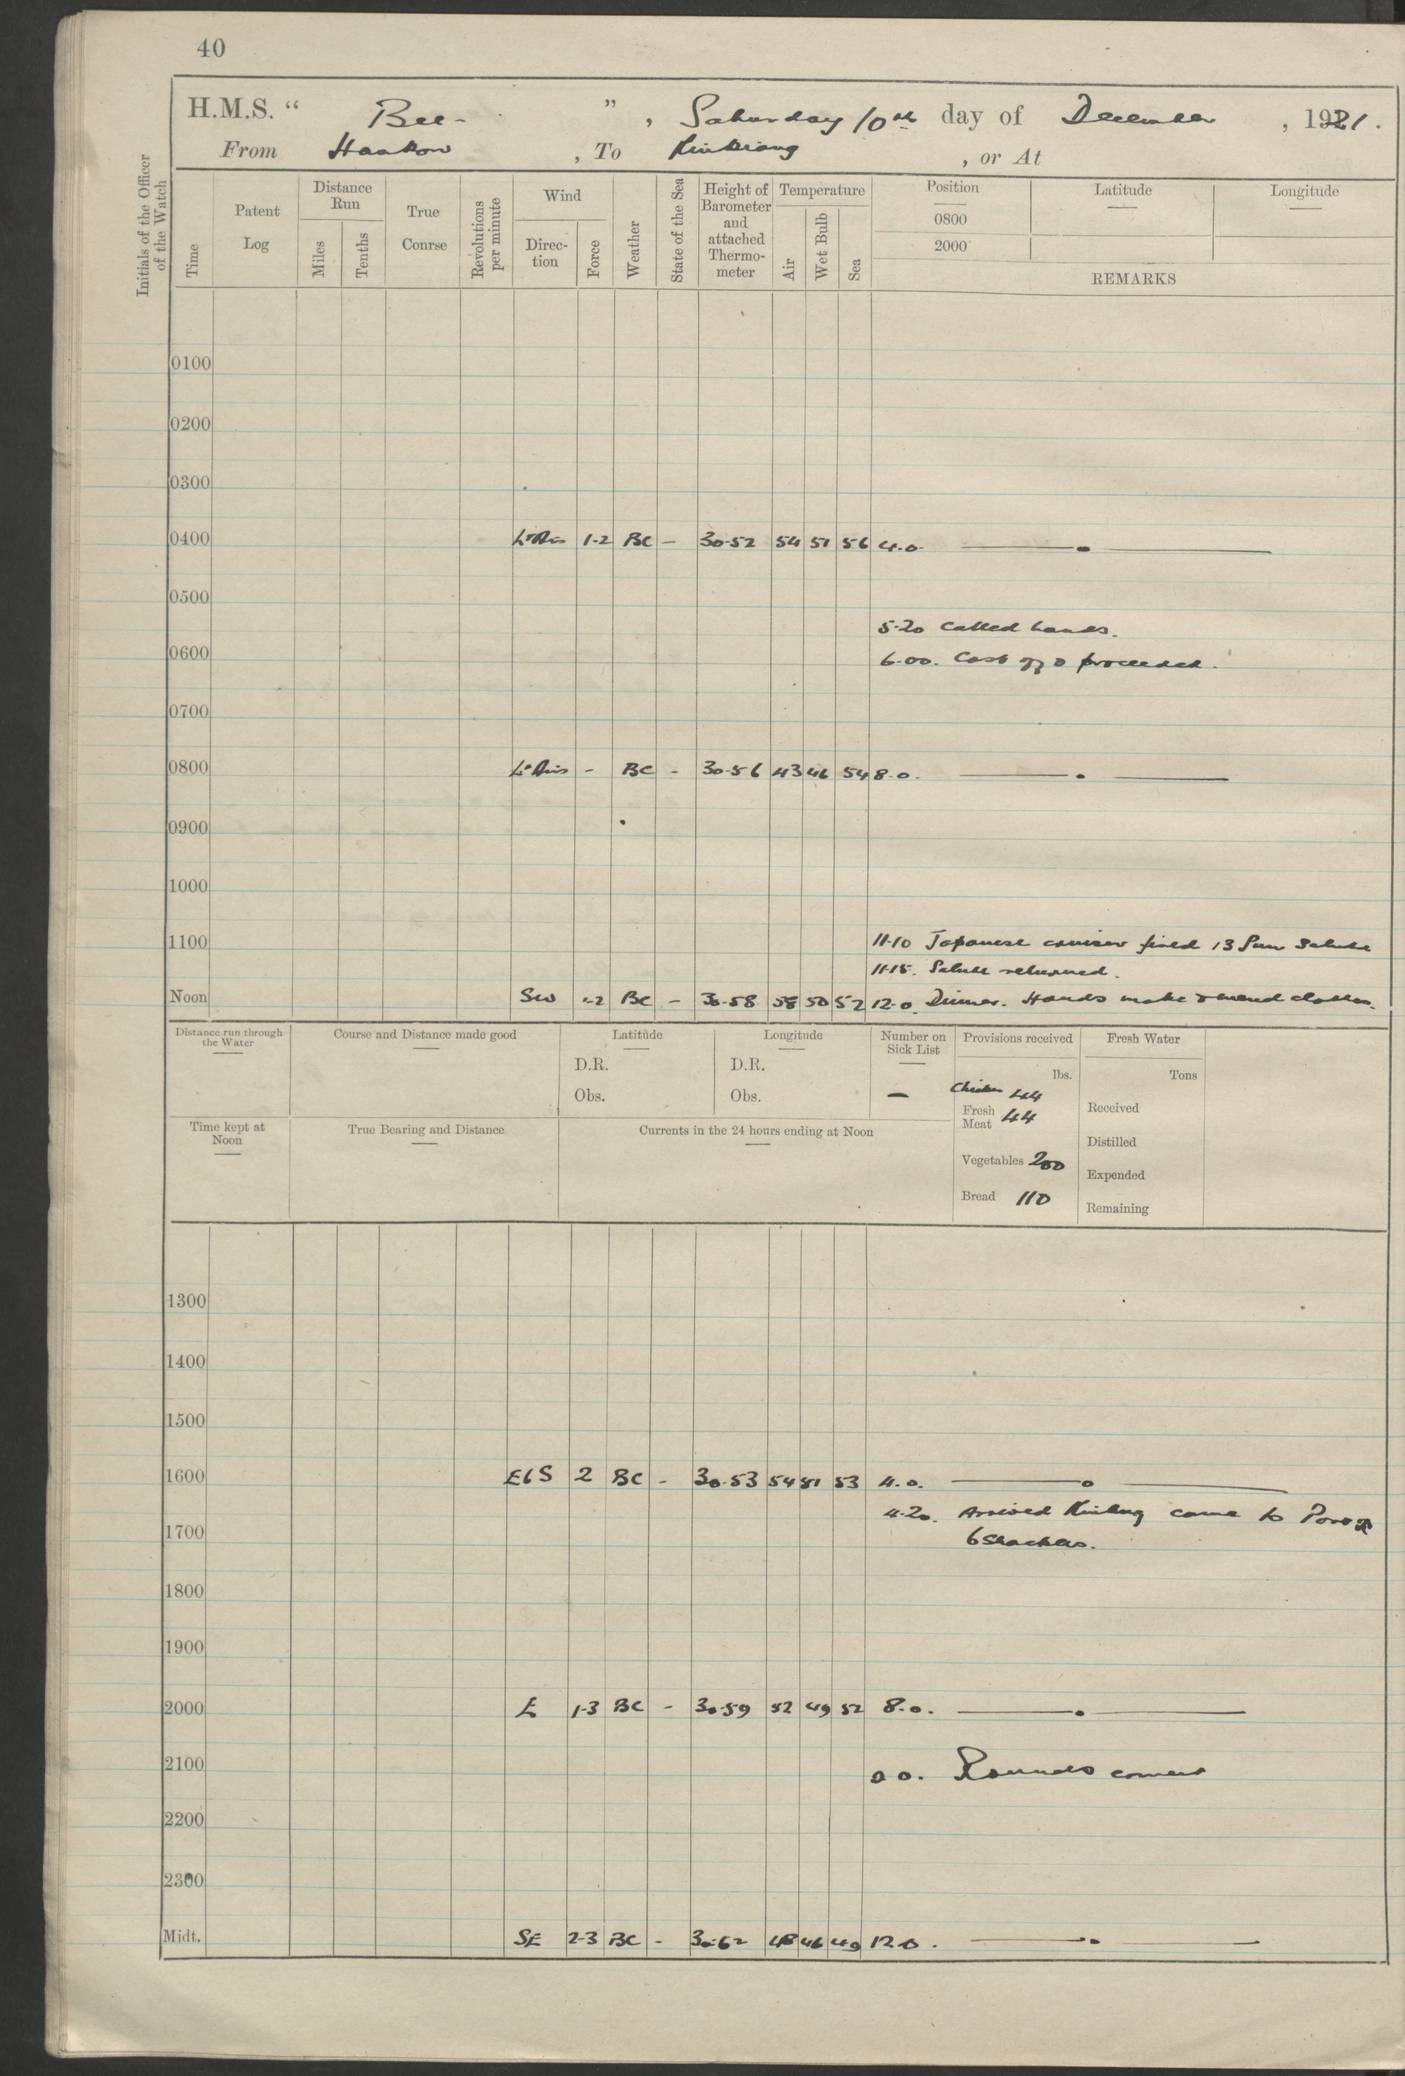 40
H.M.S. “ Bee - ” , Saturday 10th day of December , 1921 .
From Hankow , To Kiukiang , or At
Initials of the Officer of the Watch
Time
Patent Log
Distance Run
Miles
Tenths
True Course
Revolutions per minute
Wind
Direc- tion
Force
Weather
State of the Sea
Height of Barometer and attached Thermo- meter
Temperature
Air
Wet Bulb
Sea
Position
0800
2000
Latitude
Longitude
REMARKS
0100
0200
0300
0400 Lt Airs 1-2 BC - 30.52 54 51 56 4.0.
0500
5.20 Called hands.
0600
6.00. Cast off & proceeded.
0700
0800 Lt Airs - BC - 30.56 43 46 54 8.0.
0900
1000
1100 11.10 Japanese cruiser fired 13 Gun Salute
11.15. Salute returned.
Noon SW -2 BC - 30.58 58 50 52 12.0. Dinner. Hands make & mend clothes.
Distance run through the Water
Course and Distance made good
Latitude
D.R.
Obs.
Longitude
D.R.
Obs.
Number on Sick List
-
Provisions received
lbs.
Chicken 44
Fresh Meat 44
Vegetables 200
Bread 110
Fresh Water
Tons
Received
Distilled
Expended
Remaining
Time kept at Noon
True Bearing and Distance
Currents in the 24 hours ending at Noon
1300
1400
1500
1600 EbS 2 BC - 30.53 54 51 53 4.0.
4.20. Arrived Kiukiang came to Port
1700
6 Shackles.
1800
1900
2000 E 1-3 BC - 30.59 52 49 52 8.0.
2100
Rounds correct
2200
2300
Midt. SE 2-3 BC - 30.62 48 46 49 12.0.